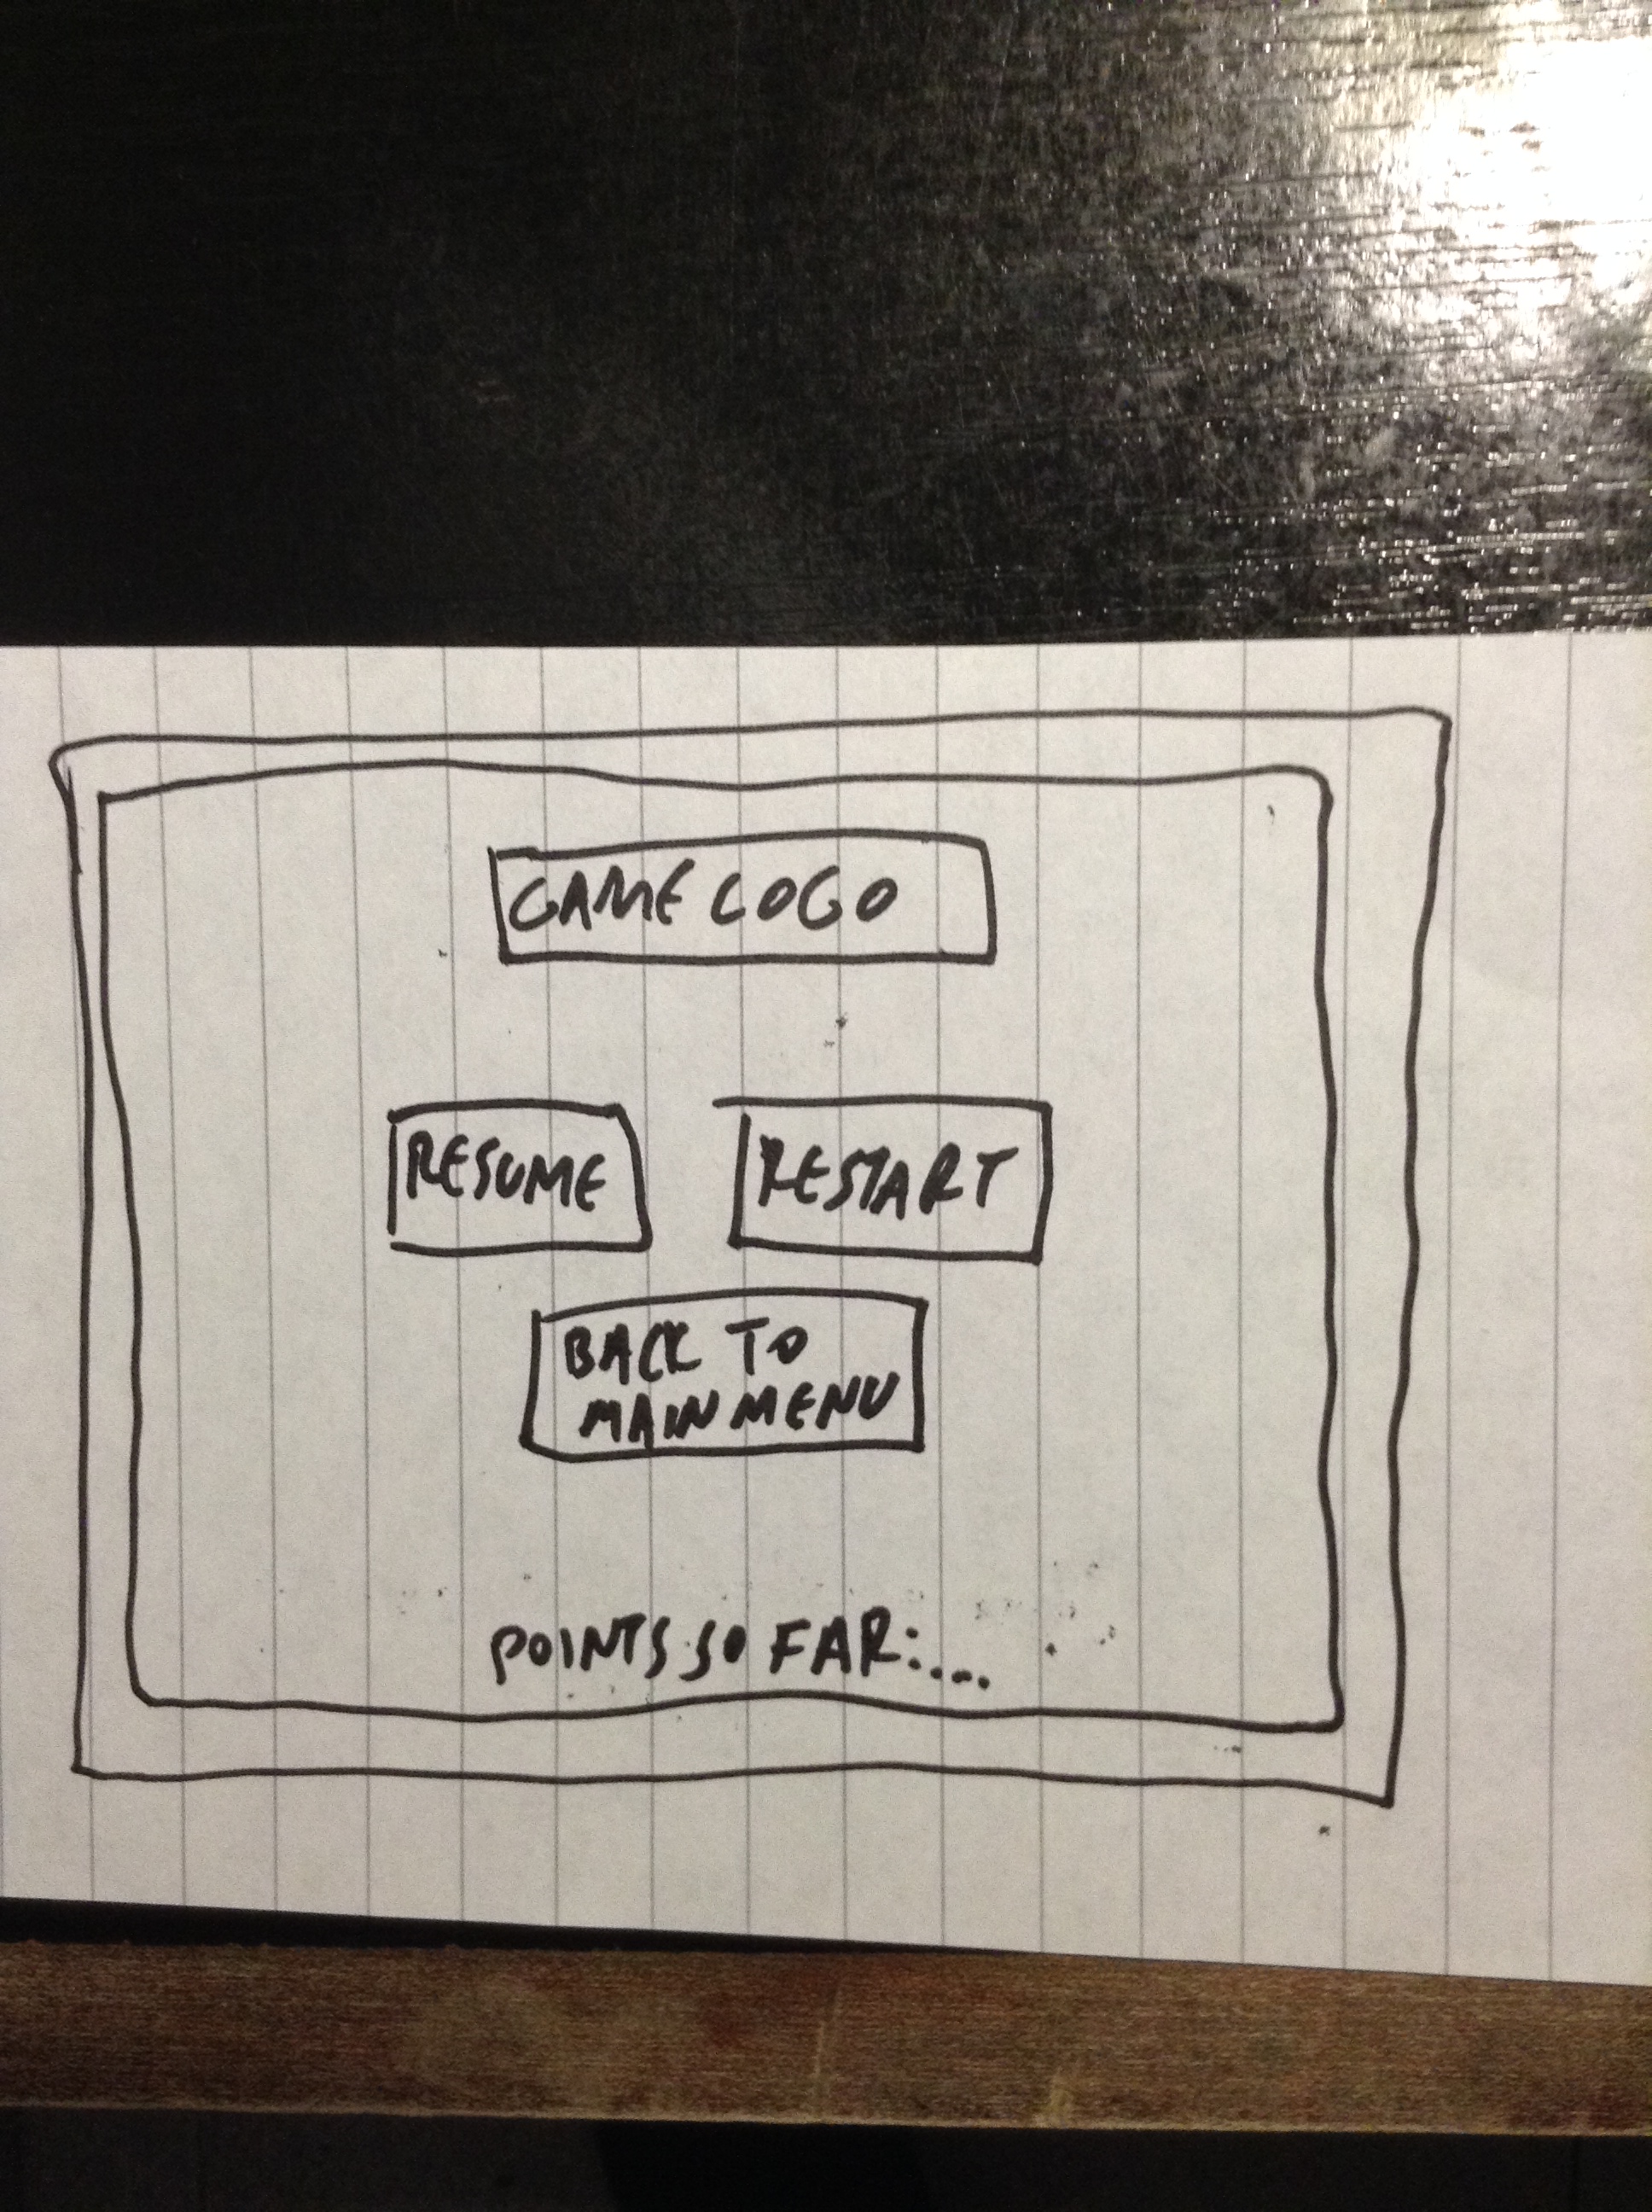 GAME LOGO
RESUME
RESTART
BACK TO
MAIN MENU
POINTS SO FAR:....